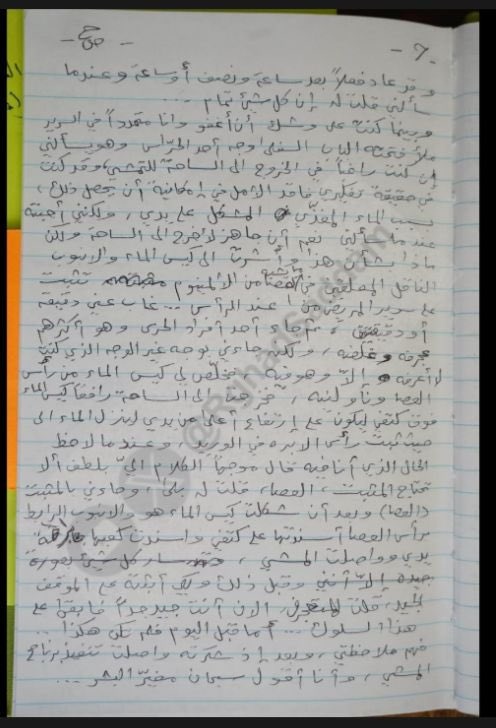 - 6 -
وقد عاد فعلاً بعد ساعة ونصف أو ساعة وعندما
سألني قلت له إن كل شيء تمام ...
وبينما كنت على وشك أن أغفو وأنا متمدداً في السرير
ملأ فتحة الباب السفلى وجه أحد الحراس وهو يسألني
إن كنت راغباً في الخروج الى الساحة للتمشي، وقد كنت
في حقيقة تفكيري فاقد الأمل في إمكانية أن يحصل ذلك،
بسبب الماء المغذّي المشكل على يدي، ولكنني أجبته
عندما سألني نعم أين جاهز لأخرج الى الساحة ولكن
ماذا بشأن هذا وأشرت الى كيس الماء والانبوب
الناقل من الألمنيوم تثبت
على سرير المريض من عند الرأس .. غاب عني دقيقة
أو دقيقتين، جاء أحد أفراد الحرس وهو أكثرهم
ولكنه جاءني بوجه غير الوجه الذي كنت
لا أعرفه إلا وهو فيه كيس الماء من رأس
العصا وناولنيه، فخرجت الى الساحة رافعاً كيس الماء
فوق كتفي ليكون على إرتفاع أعلى من يدي لينزل الماء الى
حيث ثبت رأس الابرة في الوريد، وعندما لاحظ
الحال الذي أنا فيه قال موجهاً الكلام اليّ بلطف ألا
تحتاج المثبت، العصا، قلت له بلى، وجاءني بالمثبت
(العصا) وبعد أن شكلت كيس الماء هو والانبوب الرابط
برأس العصا أسندتها على كتفي وأسندت كعبها
يدي وواصلت المشي، وسار كل شيء بصورة
جيدة إلا أنني وقبل ذلك على الموقف
الجيد، قلت الان أنت جيد جداً فابقى على
هذا السلوك ... أما قبل اليوم فلم تكن هكذا ...
فهم ملاحظتي، وبعد إذ شكرته واصلت تنفيذ برنامج
المشي، وأنا أقول سبحان مغيّر البشر ...
@RghadSaddam